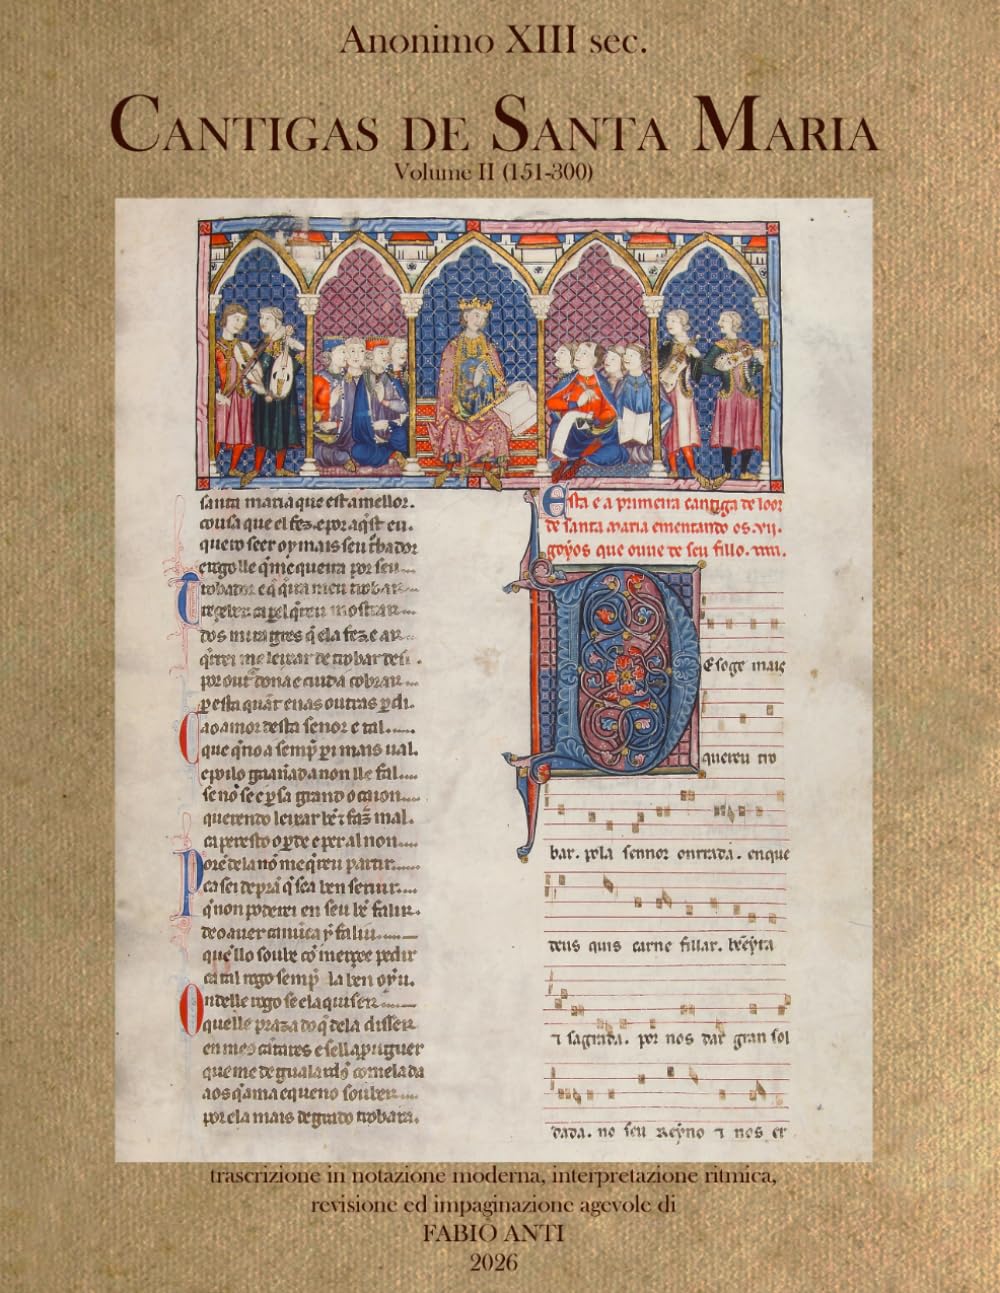 Anonimo XIII sec.
CANTIGAS DE SANTA MARIA
Volume II (151-300)
santa maria que est amellor.
cousa que el fez. e por aqst eu.
quero seer oy mais seu
e rogo lle que me queira por seu
dos miragres que ela fez. e
por outra dona e cuida cobrar
per esta quant enas outras perdi.
ao amor desta senor e tal
que queno a semp per i mais ual.
e poilo gaannad a non lle fal
se non se e per sa grand ocaion
querendo leixar ben e fazer mal.
ca per esto o perde e per al non
Poren dela non me quereu partir
ca sei de pran que sea ben seruir
que non poderei en seu ben falir
de o auer
que llo soube con merçee pedir
ca tal rogo semp la ben oyu.
Onde lle rogo se ela quiser
que lle praza do que dela disser
en meus cantares e sell aprouguer
que me de gualardon com ela da
aos que ama e queno souber
por ela mais de grado trobará.
Esta e a primeira cantiga de loor
de santa maria ementando os .vij.
goyos que ouue de seu fillo.
DE soge mais
quereu tro
bar. pola sennor onrrada. en que
deus quis carne fillar. beeyta
⁊ sagrada. por nos dar gran sol
dada. no seu reyno ⁊ nos er
trascrizione in notazione moderna, interpretazione ritmica,
revisione ed impaginazione agevole di
FABIO ANTI
2026